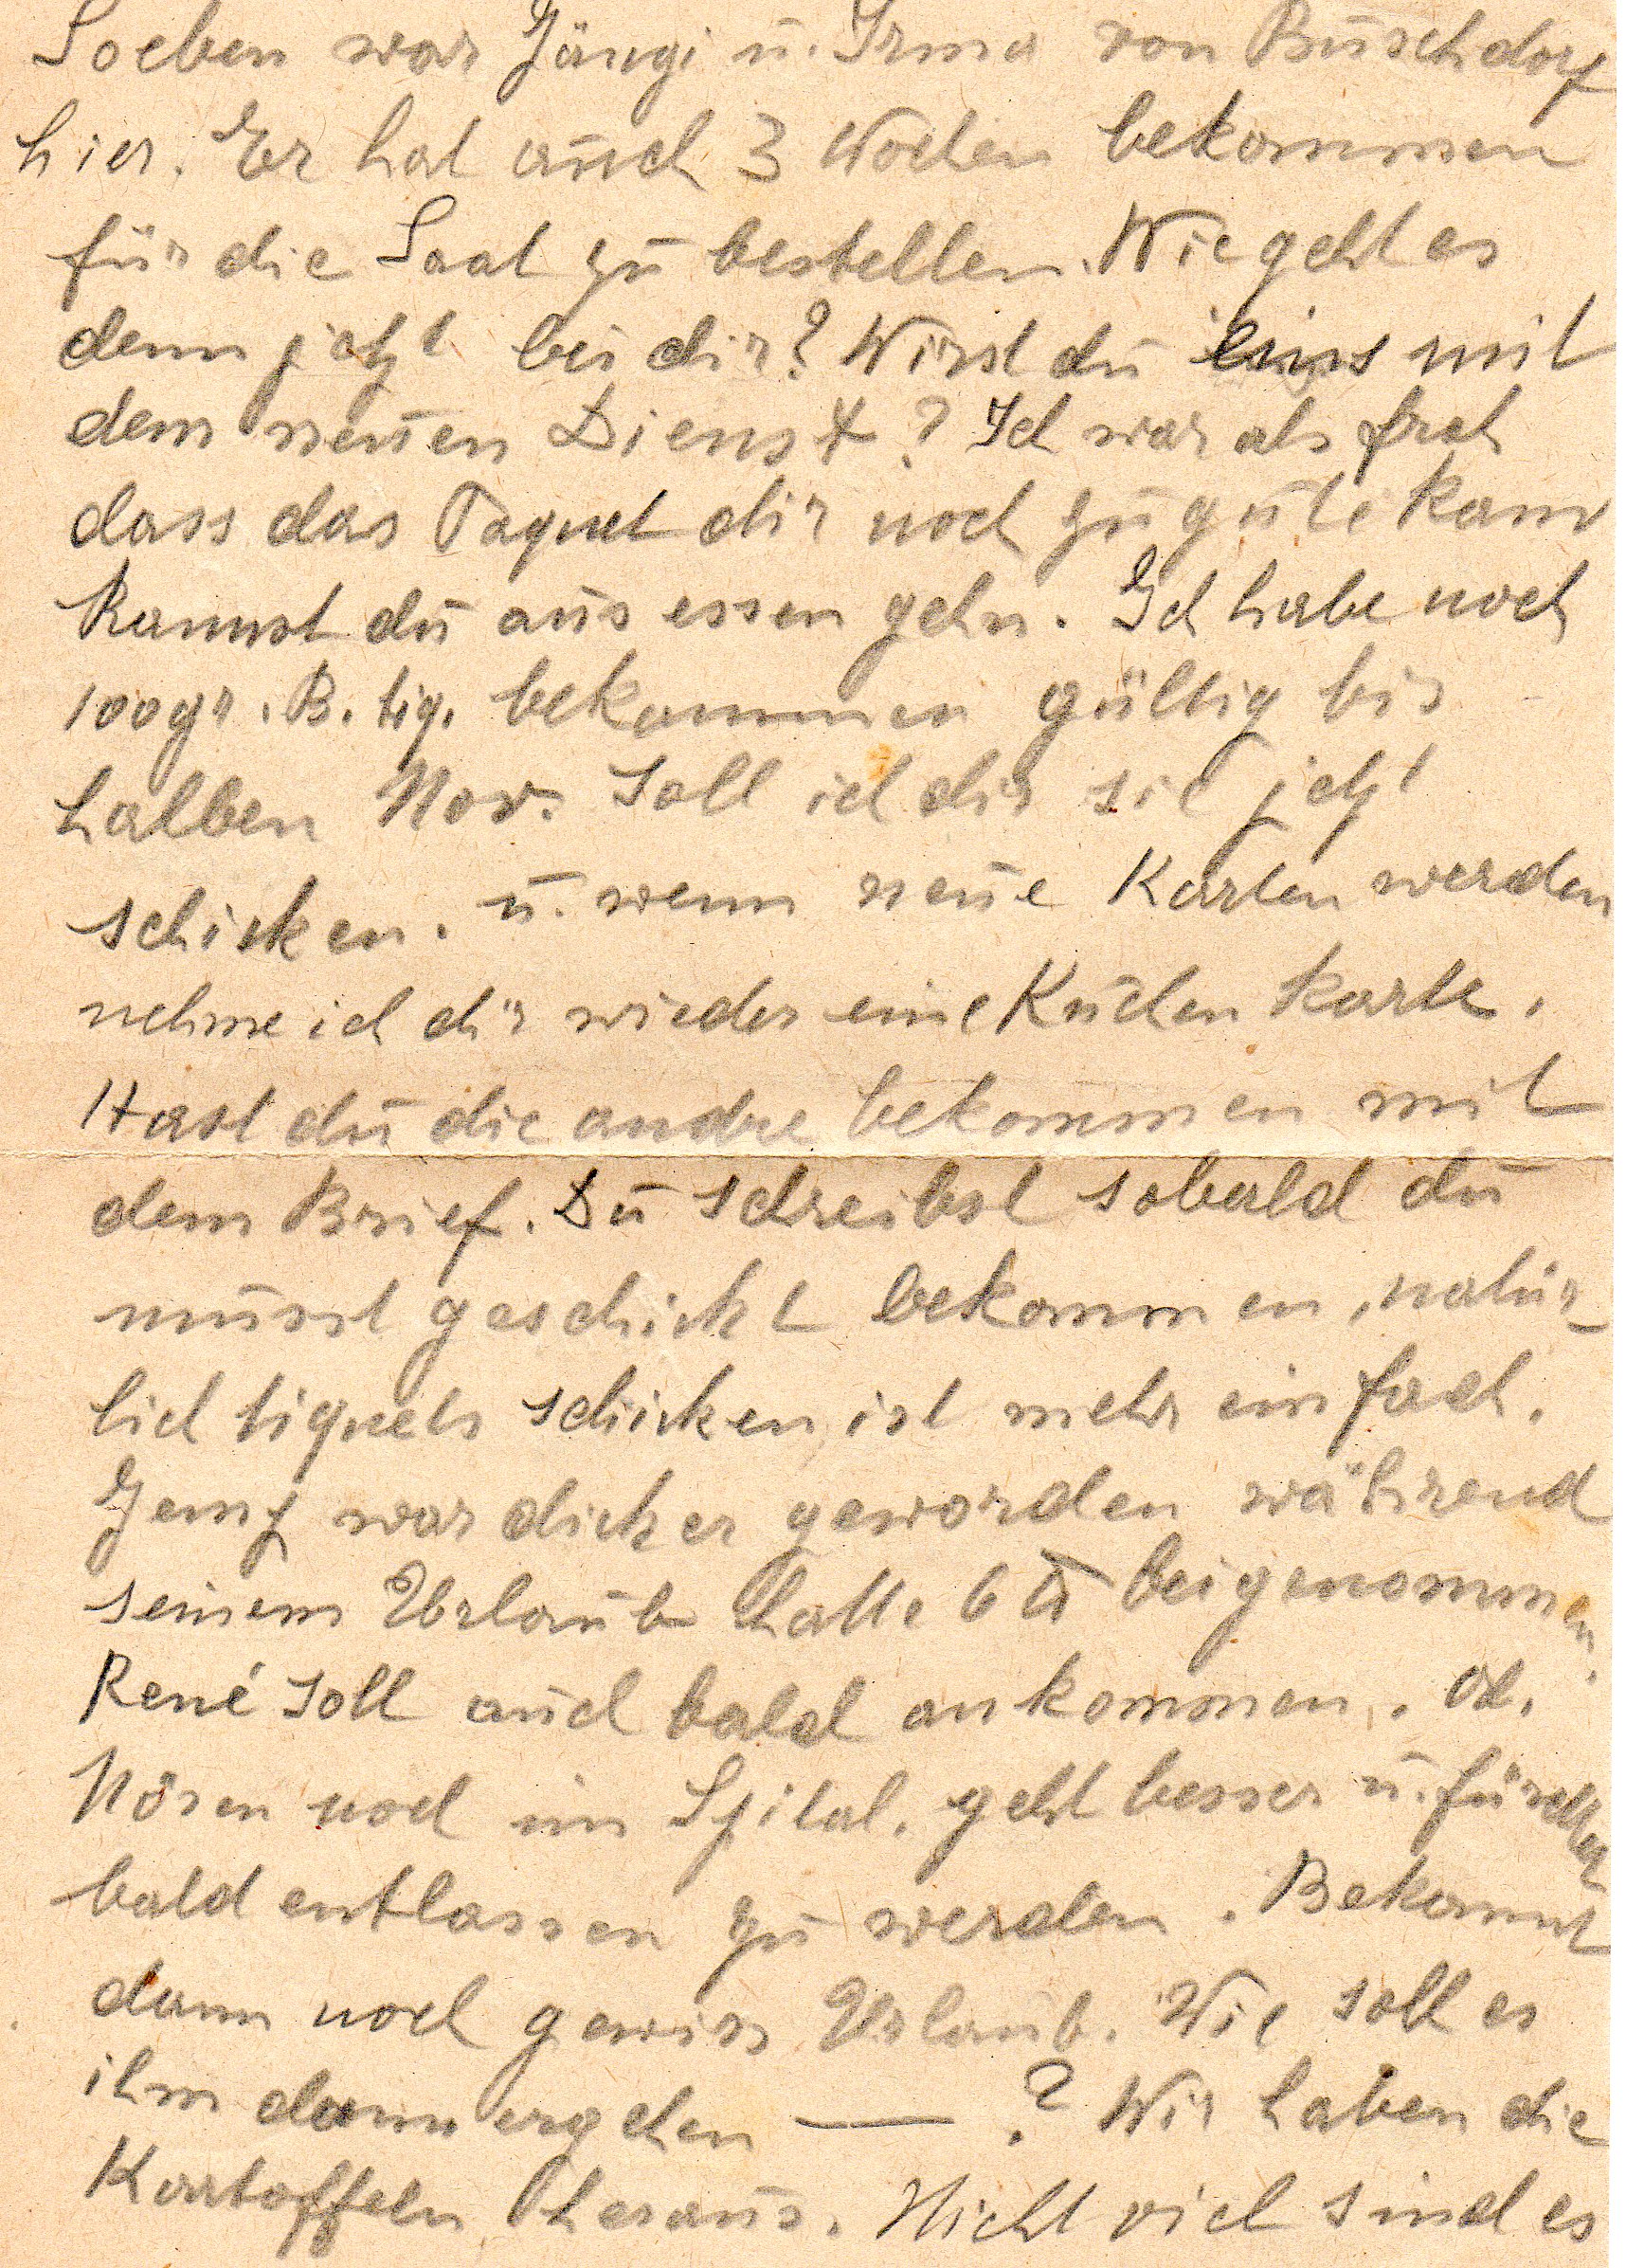 Soeben war Jängi u. Irma von Buschdorf
hier. Er hat auch 3 Wochen bekommen
für die Saat zu bestellen. Wie geht es
denn jetzt bei dir? Wirst du eins mit
dem neuen Dienst? Ich war als froh
dass das Paquet dir noch zugute kam
kannst du aus essen gehn. Ich habe noch
100gr. B. tiq. bekommen gültig bis
halben Nov. Soll ich dir sie jetzt
schicken. u. wenn neue Karten werden
nehme ich dir wieder eine Kuchen karte.
Hast du die andre bekommen mit
dem Brief. Du schreibst sobald du
musst geschickt bekommen, natür-
lich tiquets schicken ist mehr einfach.
Jemf war dicker geworden während
seinem Urlaub hatte 6 ℔ beigenommen.
René soll auch bald ankommen. Od.
Nören noch im Spital. geht besser u. fürchtet
bald entlassen zu werden. Bekommt
dann noch gewiss Urlaub. Wie soll es
ihm dann ergehen — ? Wir haben die
Kartoffeln heraus. Nicht viel sind es